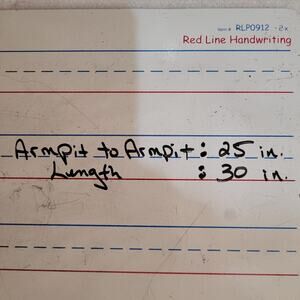 Item # RLP0912 - 2x
Red Line Handwriting
Armpit to Armpit : 25 in.
Length : 30 in.